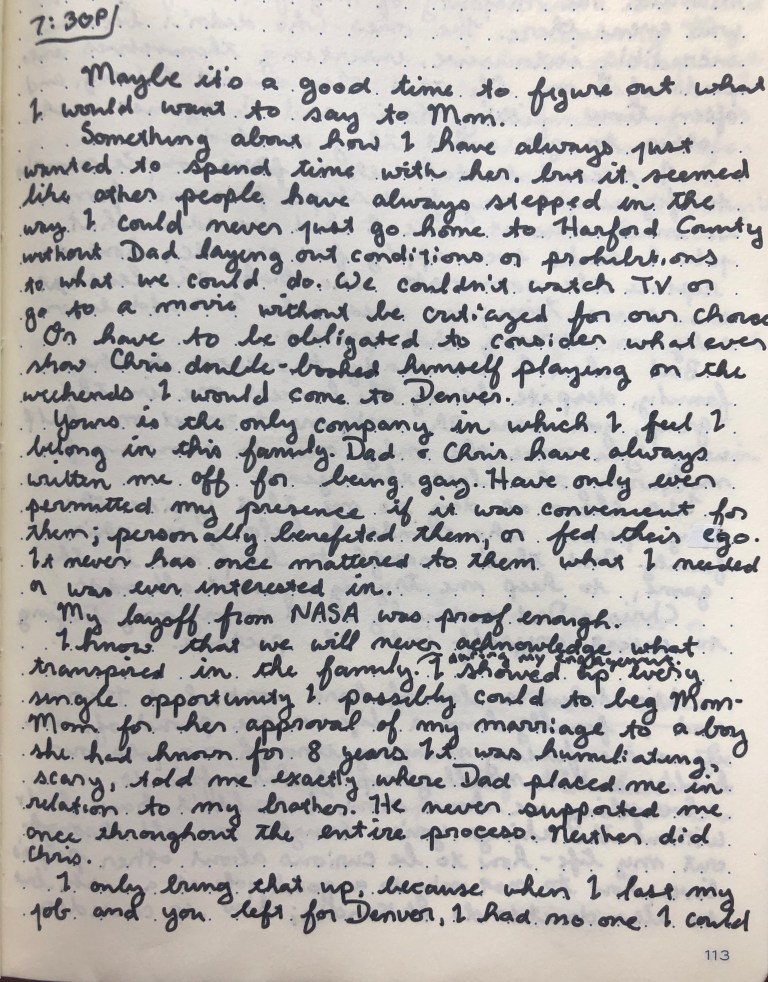 7:30P/
Maybe it's a good time to figure out what
I would want to say to Mom.
Something about how I have always just
wanted to spend time with her, but it seemed
like other people have always stepped in the
way. I could never just go home to Harford County
without Dad laying out conditions or prohibitions
to what we could do. We couldn't watch TV or
go to a movie without be critiazed for our choice
Or have to be obligated to consider whatever
show Chris double-booked himself playing on the
weekends I would come to Denver.
Yours is the only company in which I feel I
belong in this family. Dad & Chris have always
written me off for being gay. Have only ever
permitted my presence if it was convenient for
them; personally benefeted them, or fed their ego.
It never has once mattered to them what I needed
or was ever interested in.
My layoff from NASA was proof enough.
I know that we will never acknowledge what
transpired in the family. I during my engagement showed up every
single opportunity I possibly could to beg Mom-
Mom for her approval of my marriage to a boy
she had known for 8 years. It was humiliating,
scary, told me exactly where Dad placed me in
relation to my brother. He never supported me
once throughout the entire process. Neither did
Chris.
I only bring that up, because when I lost my
job and you left for Denver, I had no one I could
113